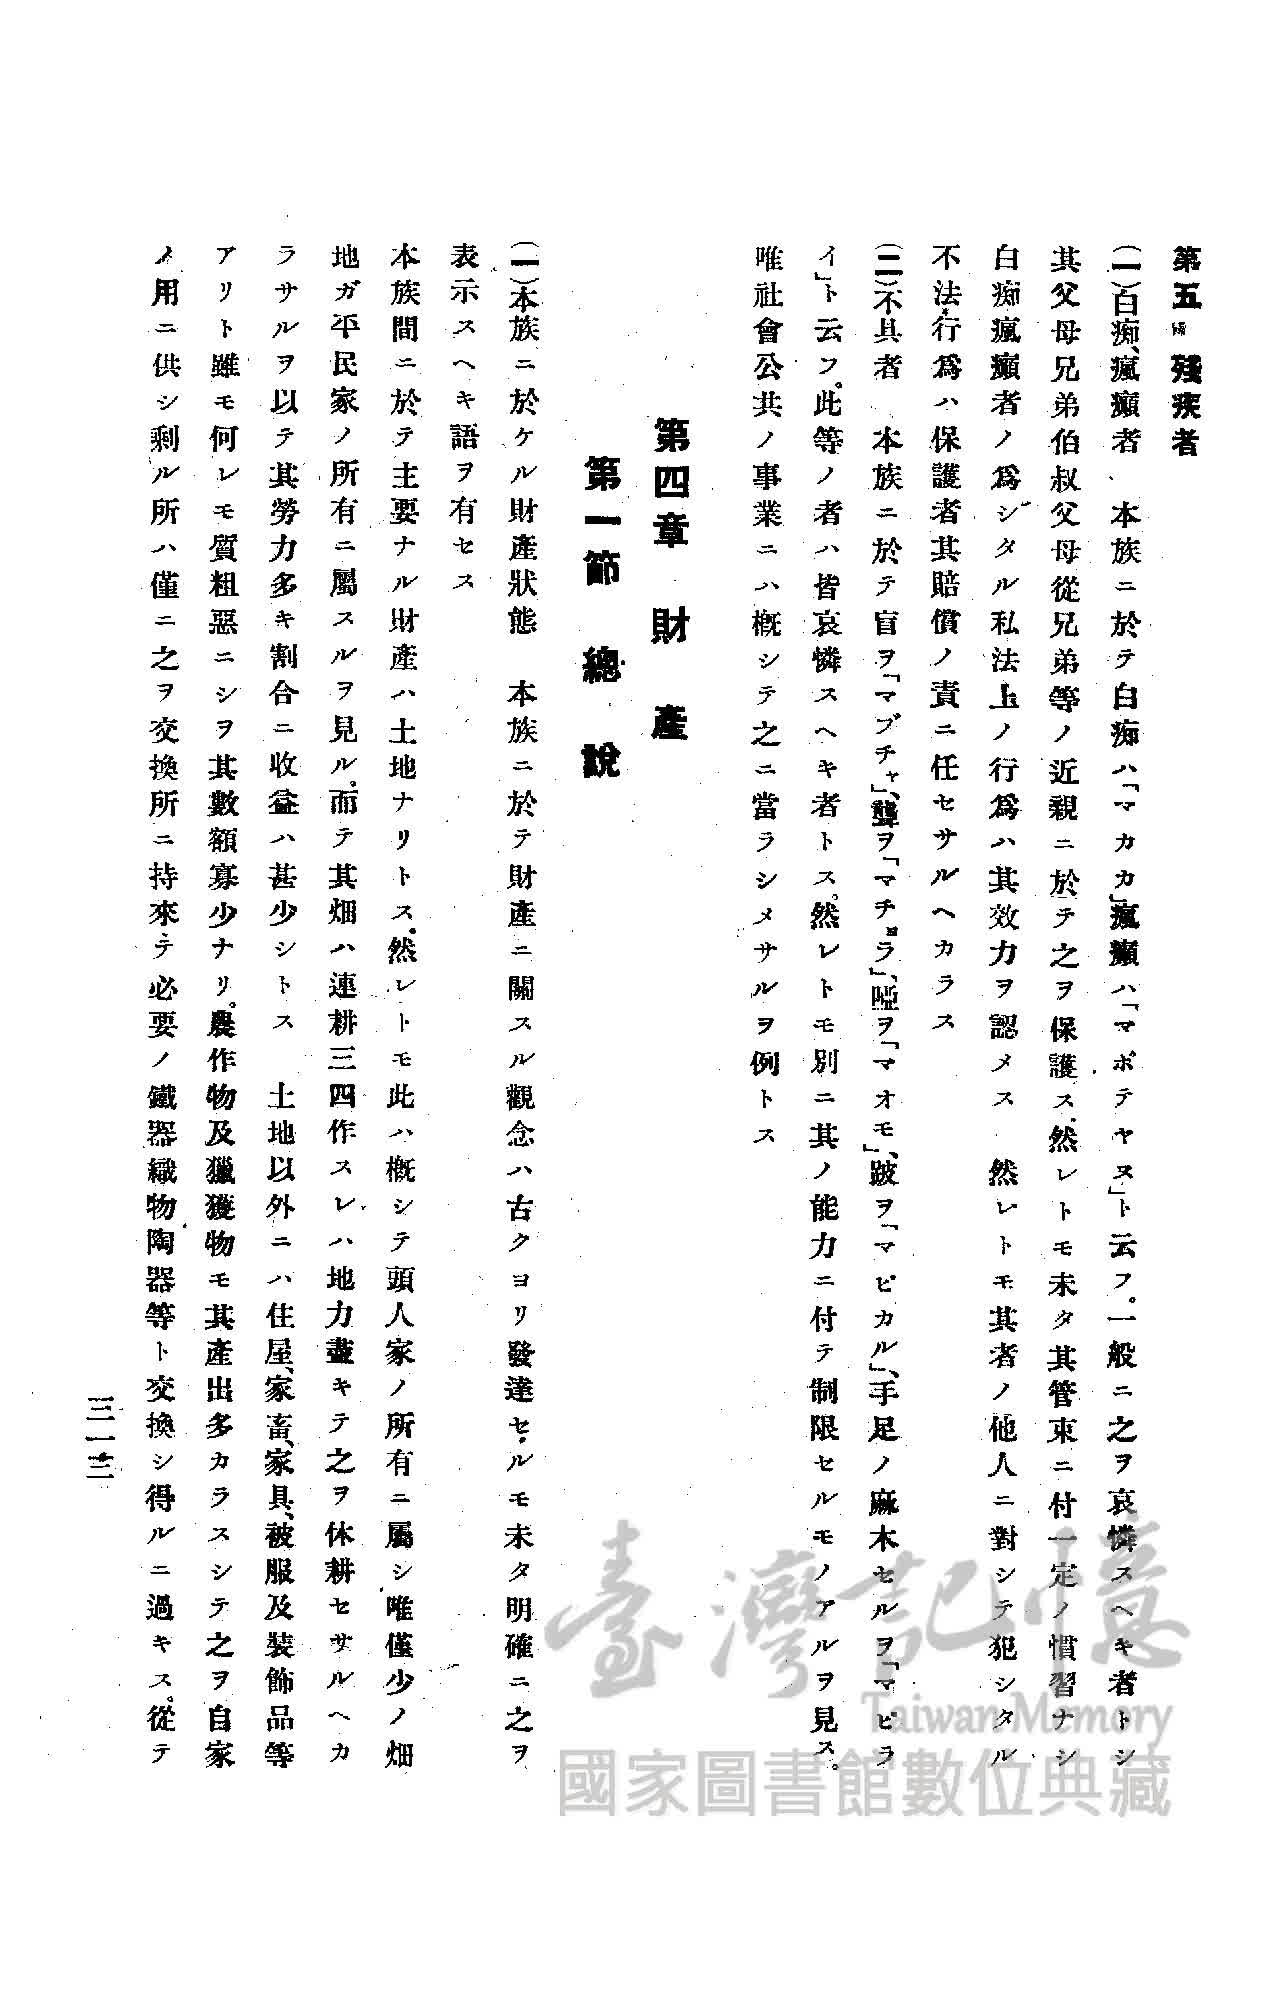 第五 殘疾者
(一)白痴、瘋癲者 本族ニ於テ白痴ハ「マカカ」瘋癲ハ「マボテヤヌ」ト云フ。一般ニ之ヲ哀憐スヘキ者トシ
其父母兄弟伯叔父母從兄弟等ノ近親ニ於テ之ヲ保護ス.然レトモ未タ其管束ニ付一定ノ慣習ナシ
白痴瘋癲者ノ爲シタル私法上ノ行爲ハ其效力ヲ認メス 然レトモ其者ノ他人ニ對シテ犯シタル
不法行爲ハ保護者其賠償ノ責ニ任セサルヘカラス
(二)不具者 本族ニ於テ盲ヲ「マブチャ」、聾ヲ「マチョラ」、啞ヲ「マオモ」、跛ヲ「マピカル」、手足ノ麻木セルヲ「マピラ
イ」ト云フ。此等ノ者ハ皆哀憐スヘキ者トス。然レトモ別ニ其ノ能力ニ付テ制限セルモノアルヲ見ス。
唯社會公共ノ事業ニハ概シテ之ニ當ラシメサルヲ例トス
第四章 財產
第一節 總說
(一)本族ニ於ケル財產狀態 本族ニ於テ財產ニ關スル觀念ハ古クヨリ發達セルモ未タ明確ニ之ヲ
表示スヘキ語ヲ有セス
本族間ニ於テ主要ナル財產ハ土地ナリトス.然レトモ此ハ概シテ頭人家ノ所有ニ屬シ唯僅少ノ畑
地ガ平民家ノ所有ニ屬スルヲ見ル.而テ其畑ハ連耕三四作スレハ地力盡キテ之ヲ休耕セサルヘカ
ラサルヲ以テ其勞力多キ割合ニ收益ハ甚少シトス 土地以外ニハ住屋、家畜、家具、被服及裝飾品等
アリト雖モ何レモ質粗惡ニシヲ其數額寡少ナリ。農作物及獵獲物モ其產出多カラスシテ之ヲ自家
ノ用ニ供シ剩ル所ハ僅ニ之ヲ交換所ニ持來テ必要ノ鐵器織物陶器等ト交換シ得ルニ過キス。從テ
三一三
臺灣記憶
Taiwan Memory
國家圖書館數位典藏